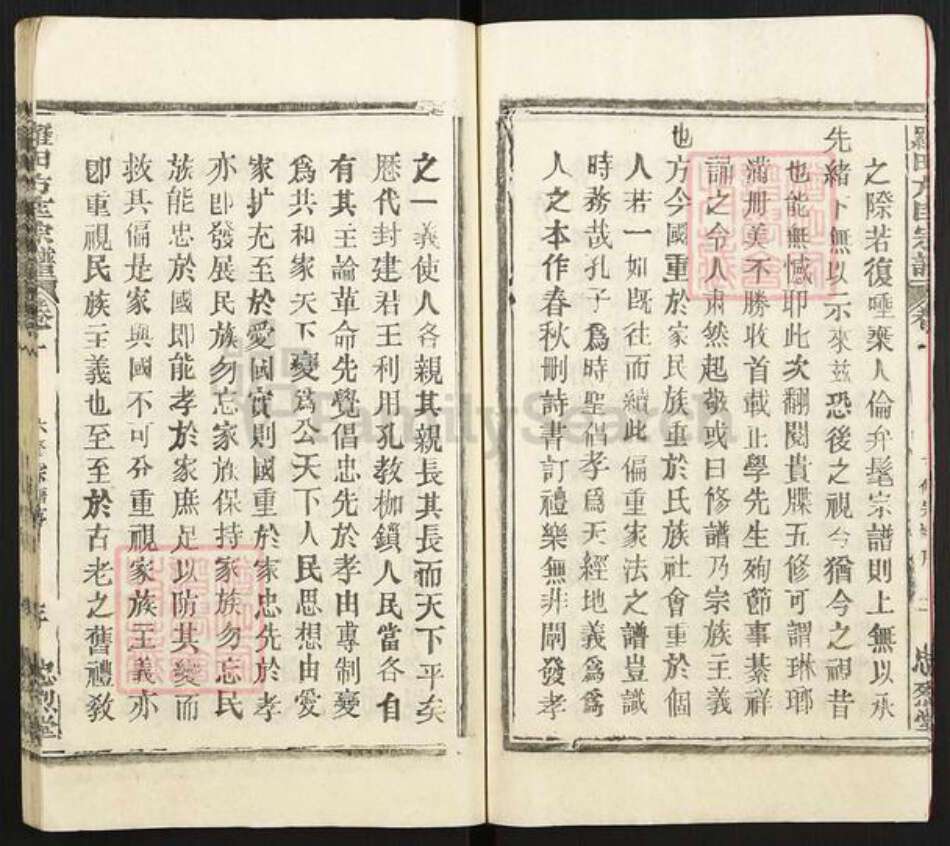 之際若復唾棄人倫弁髦宗譜則上無以承
先緒下無以示來茲恐後之視今猶今之視昔
也能無憾耶此次翻閱貴牒五修可謂琳瑯
滿冊美不勝收首載止學先生殉節事綦祥
誦之令人肅然起敬或曰修譜乃宗族主義
也方今國重於家民族重於氏族社會重於個
人若一如既往而續此偏重家法之譜豈識
時務哉孔子為時聖倡孝為天經地義為為
人之本作春秋刪詩書訂禮樂無非闡發孝
之一義使人各親其親長其長而天下平矣
歷代封建君王利用孔教枷鎖人民當各自
有其主論革命先覺倡忠先於孝由專制變
為共和家天下變為公天下人民思想由愛
家擴充至於愛國實則國重於家忠先於孝
亦即發展民族勿忘家族保持家族勿忘民
族能忠於國即能孝於家庶足以防其變而
救其偏是家與國不可分重視家族主義亦
即重視民族主義也至至於古老之舊禮教
羅田方氏宗譜
卷一
忠烈堂
FamilySearch